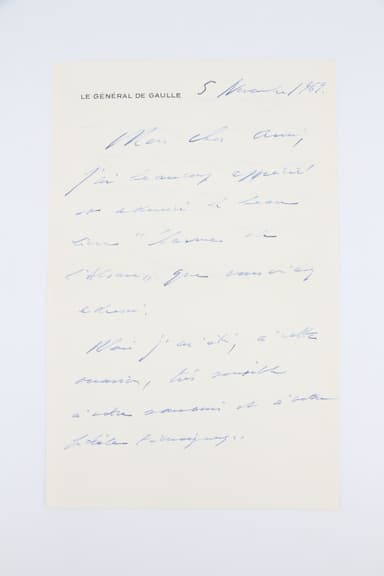 LE GÉNÉRAL DE GAULLE
5 Novembre 1969.
Mon cher Ami,
J'ai beaucoup apprécié
et admiré le beau
livre
l'Alsace" que vous m'avez
adressé.
Mais j'ai été, à cette
occasion, très sensible
à votre souvenir et à votre
fidèle témoignage.